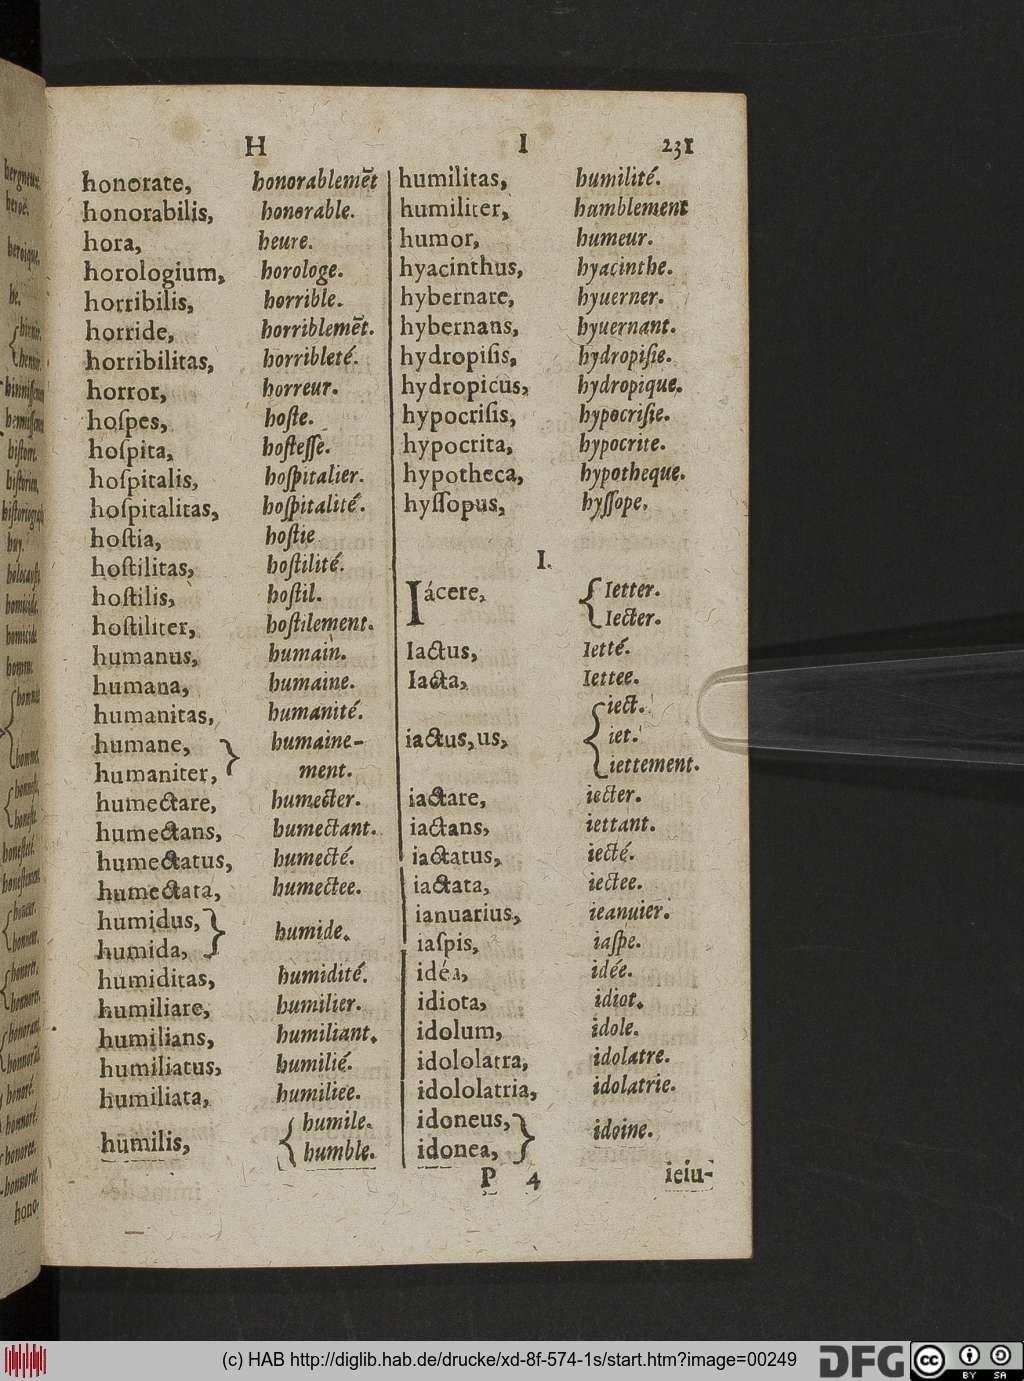 H I 231
honorate, honorablemēt
honorabilis, honorable.
hora, heure.
horologium, horologe.
horribilis, horrible.
horride, horriblemēt.
horribilitas, horribleté.
horror, horreur.
hoſpes, hoſte.
hoſpita, hoſteſſe.
hoſpitalis, hoſpitalier.
hoſpitalitas, hoſpitalité.
hoſtia, hoſtie
hoſtilitas, hoſtilité.
hoſtilis, hoſtil.
hoſtiliter, hoſtilement.
humanus, humain.
humana, humaine.
humanitas, humanité.
humane, } humaine-
humaniter, } ment.
humectare, humecter.
humectans, humectant.
humectatus, humecté.
humectata, humectee.
humidus, }
humida, } humide.
humiditas, humidité.
humiliare, humilier.
humilians, humiliant.
humiliatus, humilié.
humiliata, humiliee.
humilis, { humile.
{ humble.
humilitas, humilité.
humiliter, humblement
humor, humeur.
hyacinthus, hyacinthe.
hybernare, hyuerner.
hybernans, hyuernant.
hydropiſis, hydropiſie.
hydropicus, hydropique.
hypocriſis, hypocriſie.
hypocrita, hypocrite.
hypotheca, hypotheque.
hyſſopus, hyſſope.
I.
Iácere, { Ietter.
{ Iecter.
Iactus, Ietté.
Iacta, Iettee.
{ iect.
iactus,us, { iet.
{ iettement.
iactare, iecter.
iactans, iettant.
iactatus, iecté.
iactata, iectee.
ianuarius, ieanuier.
iaſpis, iaſpe.
idéa, idée.
idiota, idiot.
idolum, idole.
idololatra, idolatre.
idololatria, idolatrie.
idoneus, }
idonea, } idoine.
P 4 ieiu-
(c) HAB http://diglib.hab.de/drucke/xd-8f-574-1s/start.htm?image=00249
DFG
cc BY SA